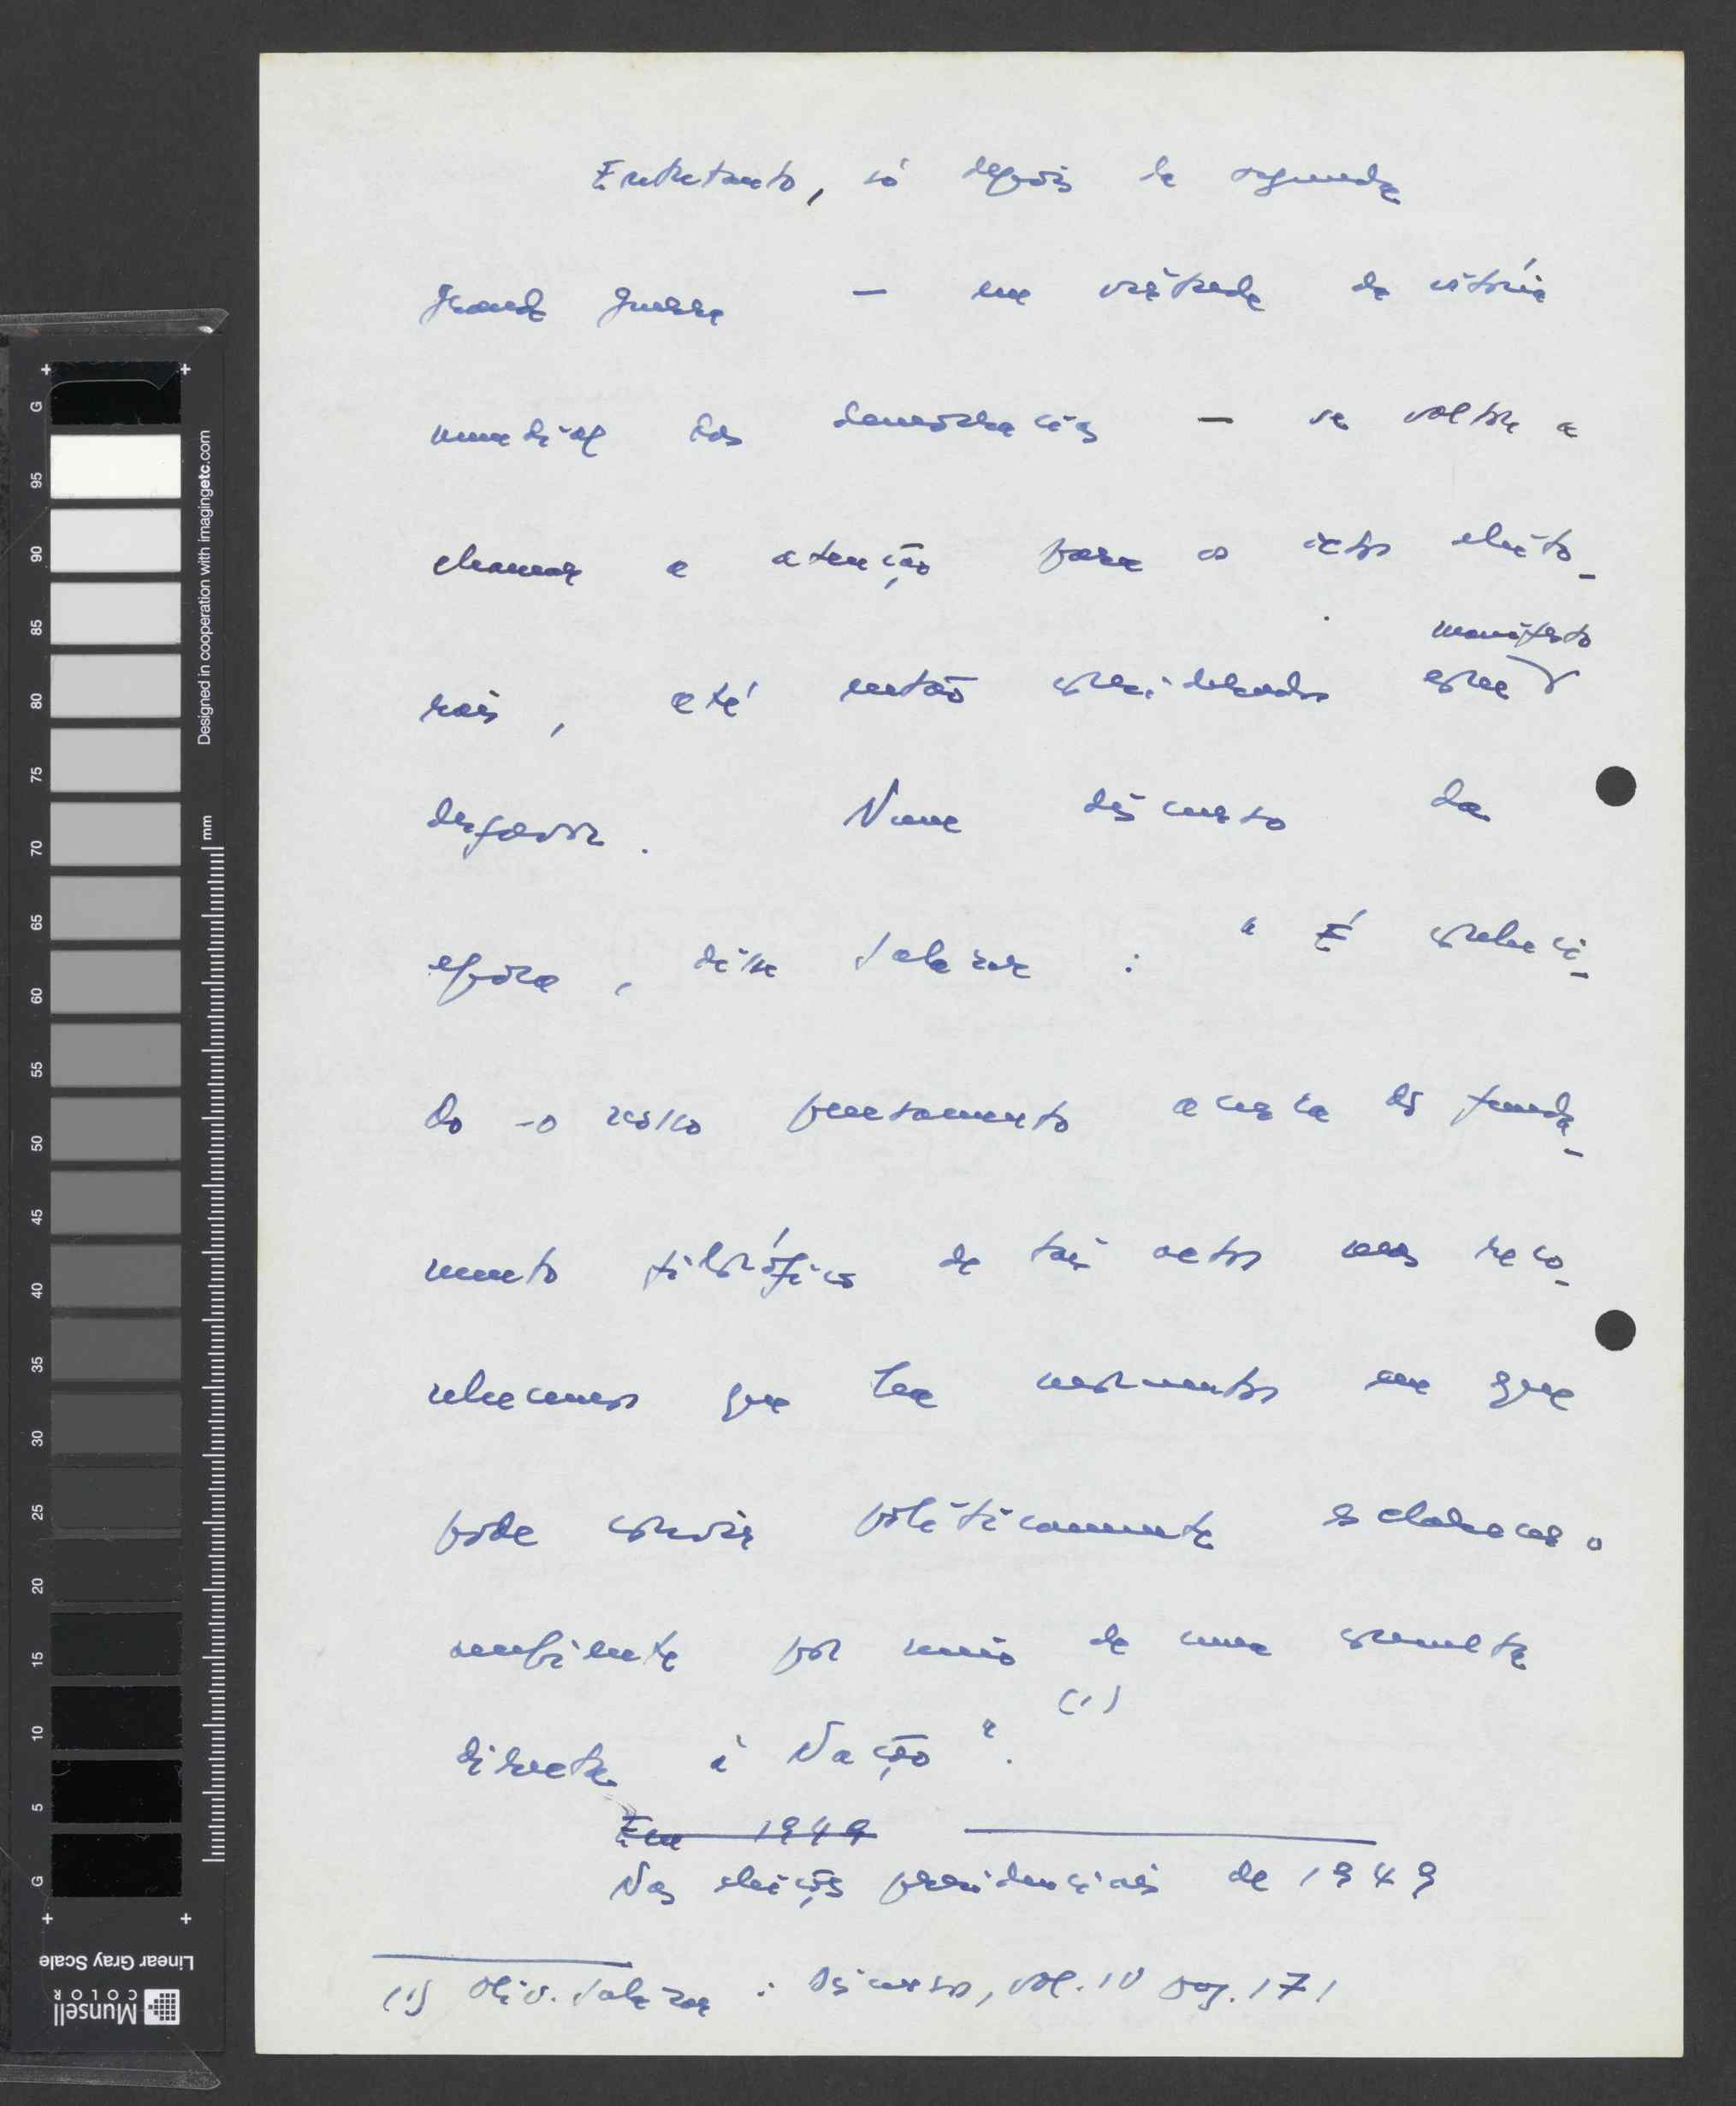 Entretanto, só depois da segunda
grande guerra — em virtude da vitória
mundial das democracias — se volta a
chamar a atenção para os actos eleito-
manifesto
rais, até então considerados com
desfavor. Num discurso da
época, disse Salazar: "É conheci-
do o nosso pensamento acerca do funda-
mento filosófico de tais actos mas reco-
nhecemos que há momentos em que
pode convir politicamente esclarecer o
ambiente por meio de uma consulta
directa à Nação". (1)
Em 1949
Nas eleições presidenciais de 1949
(1) Oliv. Salazar: Discursos, vol. IV pag. 171
G 5 10 15 20 25 30 35 40 45 50 55 60 65 70 75 80 85 90 95 G
mm
Designed in cooperation with imagingetc.com
Linear Gray Scale
Munsell
COLOR